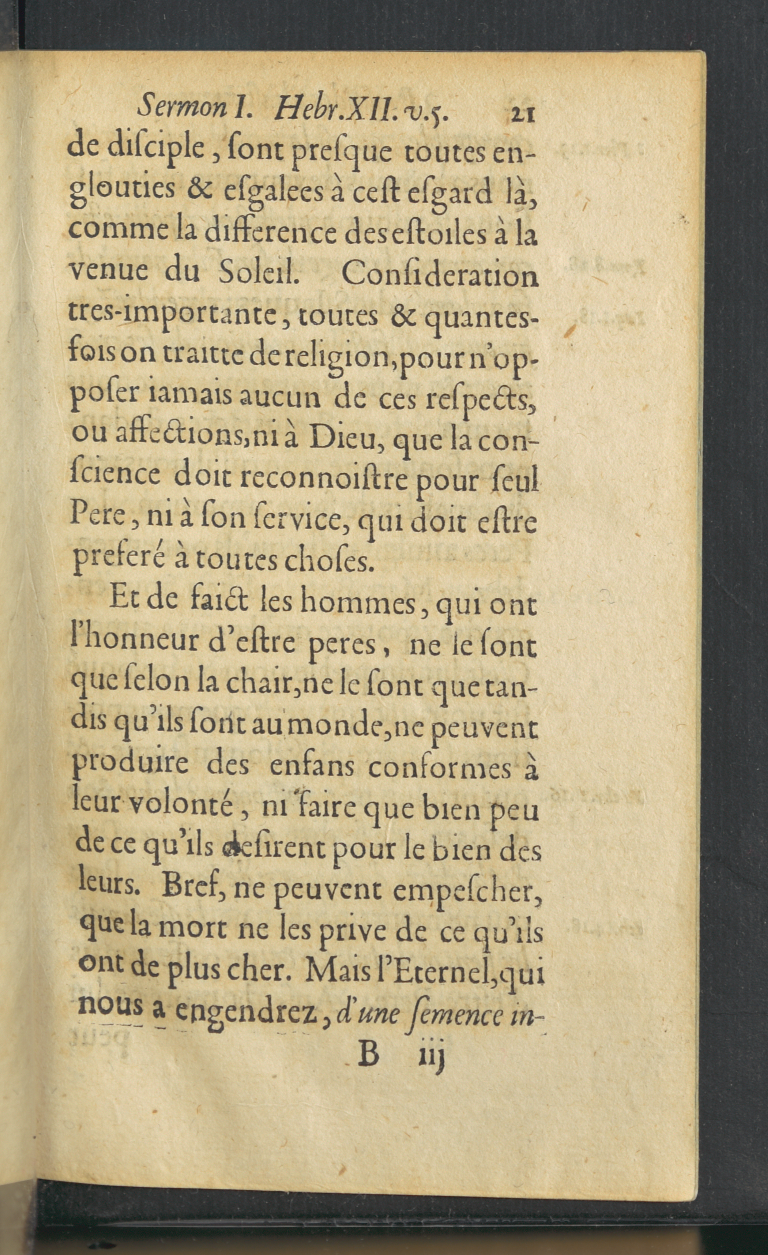 Sermon I. Hebr.XII. v.5. 21
de diſciple, ſont preſque toutes en-
glouties & eſgalees à ceſt eſgard là,
comme la difference des eſtoiles à la
venue du Soleil. Conſideration
tres-importante, toutes & quantes-
fois on traitte de religion, pour n'op-
poſer iamais aucun de ces reſpects,
ou affections, ni à Dieu, que la con-
ſcience doit reconnoiſtre pour ſeul
Pere, ni à ſon ſervice, qui doit eſtre
preferé à toutes choſes.
Et de faict les hommes, qui ont
l'honneur d'eſtre peres, ne le ſont
que ſelon la chair, ne le ſont que tan-
dis qu'ils ſont au monde, ne peuvent
produire des enfans conformes à
leur volonté, ni faire que bien peu
de ce qu'ils deſirent pour le bien des
leurs. Bref, ne peuvent empeſcher,
que la mort ne les prive de ce qu'ils
ont de plus cher. Mais l'Eternel, qui
nous a engendrez, d'une ſemence in-
B iij